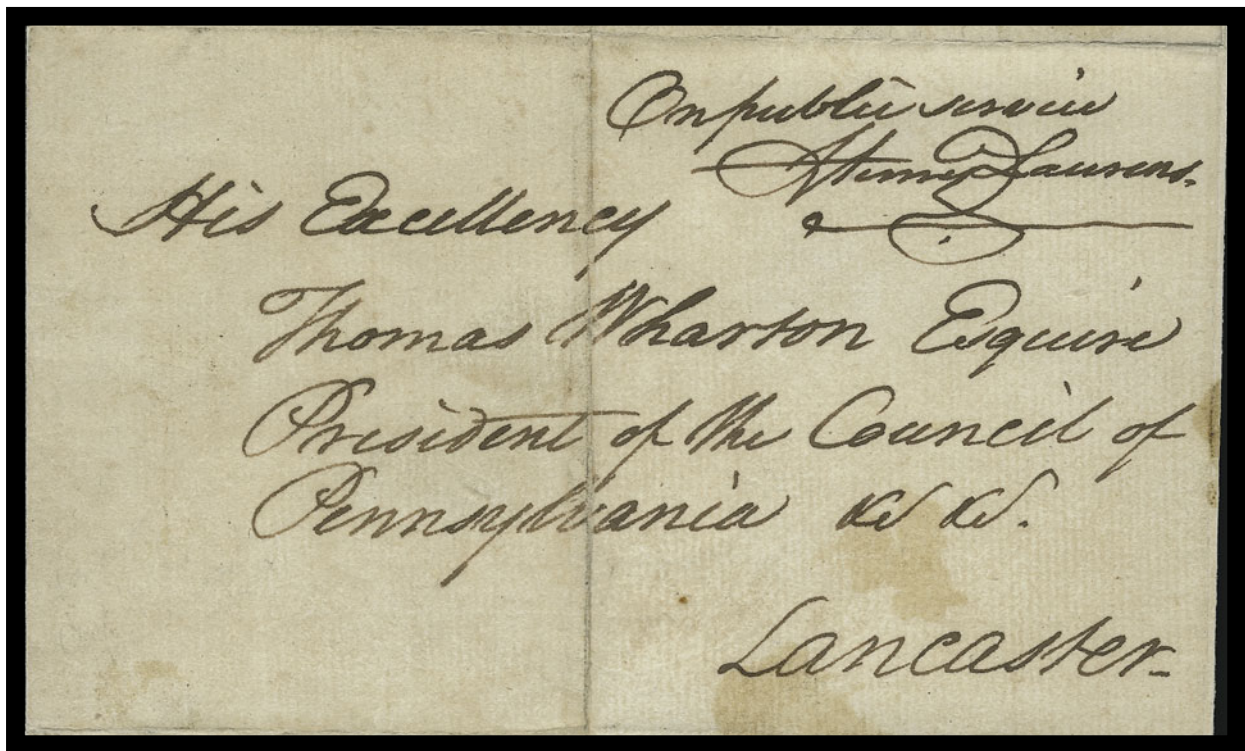 On public service
Henry Laurens.
His Excellency
Thomas Wharton Esquire
President of the Council of
Pennsylvania &c &c.
Lancaster